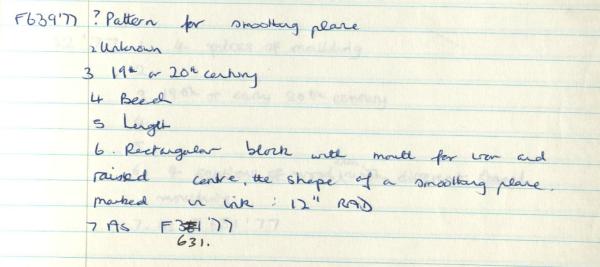 F639'77 ? Pattern for smoothing plane
2 Unknown
3 19th or 20th century
4 Beech
5 Length
6. Rectangular block with mouth for iron and
raised centre, the shape of a smoothing plane.
marked in ink : 12" RAD
7 As F 1'77
631.